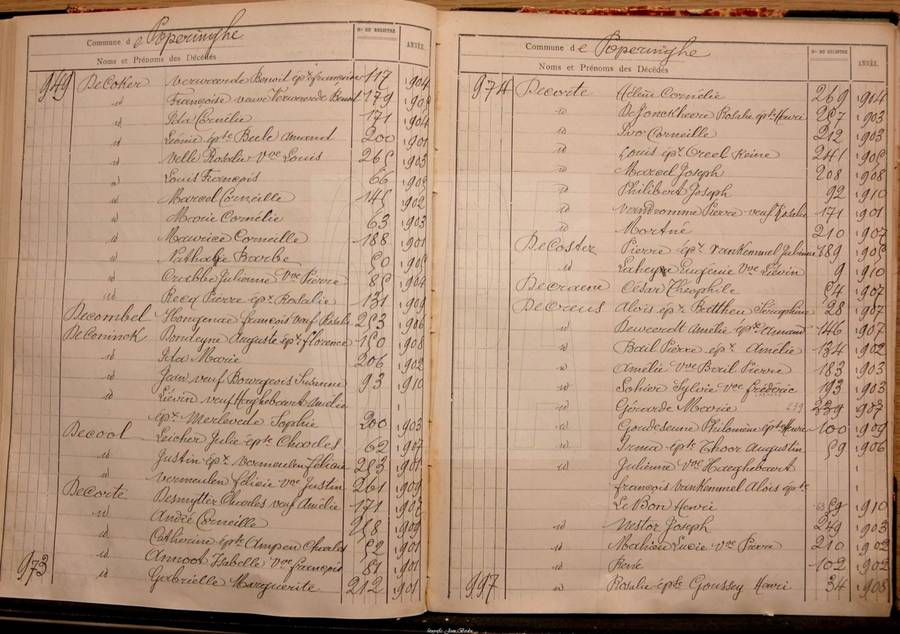 Commune de Poperinghe
Noms et Prénoms des Décédés
Nº DU REGISTRE
ANNÉE
949 DeCoker Verwaerde Benoit épx françoise 117 1904
id Françoise veuve Verwaerde Benoit 179
id Ida Cornélie 171 1904
id Léonie épte Beele Amand 200 1901
id Velle Rosalie Vve Louis 265 1903
id Louis François 66
id Marcel Corneille 145 1902
id Marie Cornélie 63 1903
id Maurice Corneille 188 1901
id Nathalie Barbe 50
id Crabbe Julienne Vve Pierre 85 1904
id Recq Pierre épx Rosalie 131
Decombel françois veuf Rosalie 253 1906
DeConinck Bondeyne Auguste épx florence 150 1908
id Ida Marie 206 1902
id Jean veuf Bourgeois Suzanne 93 1910
id Liévin veuf Haghebaert Amélie
épx Merlevede Sophie 200 1903
Decool Leicher Julie épte Charles 62 1907
id Justin épx Vermeulen félicie 253 1901
id Vermeulen félicie Vve Justin 261 1909
Decorte Desmytter Charles veuf Amélie 171
id André Corneille 258 1909
id Catherine épte Ampen Charles 52 1901
id Annoot Isabelle Vve françois 81 1901
973 id Gabrielle Marguerite 212 1901
Commune de Poperinghe
Noms et Prénoms des Décédés
Nº DU REGISTRE
ANNÉE
974 Decorte Hélène Cornélie 269 1904
id DeJonckheere Rosalie épte Henri 257 1903
id Ivo Corneille 212 1903
id Louis épx Creel Reine 241
id Marcel Joseph 208 1908
id Philibert Joseph 92 1910
id Vandromme Pierre veuf Rosalie 171 1901
id Mortné 210 1907
DeCoster Pierre épx Vankemmel Julienne 189
id Eugénie Vve Liévin 9 1910
Decraene César Théophile 54 1907
DeCreus Aloïs épx Battheu Séraphine 28 1907
id Amélie épte Amand 146 1907
id Bail Pierre épx Amélie 134 1902
id Amélie Vve Bail Pierre 183 1903
id Sohier Sylvie Vve frédéric 193 1903
id Gérarde Marie 239 1907
id Goudeseune Philomène épte Henri 100 1909
id Irma épte Thoor Augustin 59 1906
id Julienne Vve Haeghebaert
françois Vankemmel Aloïs épte
Le Bon Henri 59 1910
id Nestor Joseph 249 1903
id Mahieu Lucie Vve Pierre 210 1902
id René 102 1902
997 id Rosalie épte Goussey Henri 34